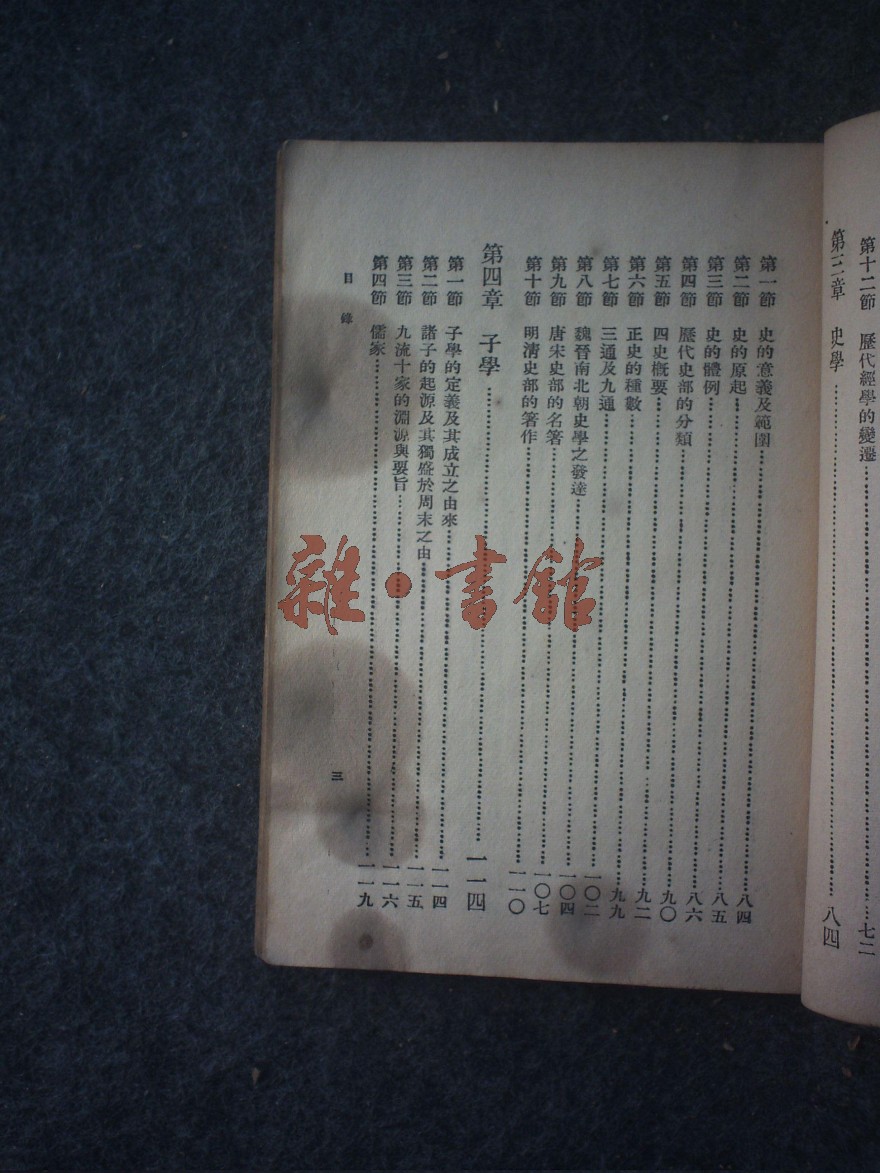 第十二節 歷代經學的變遷……七二
第三章 史學……八四
第一節 史的意義及範圍……八四
第二節 史的原起……八五
第三節 史的體例……八六
第四節 歷代史部的分類……九〇
第五節 四史概要……九二
第六節 正史的種數……九九
第七節 三通及九通……一〇二
第八節 魏晉南北朝史學之發達……一〇四
第九節 唐宋史部的名箸……一〇七
第十節 明清史部的箸作……一一〇
第四章 子學……一一四
第一節 子學的定義及其成立之由來……一一四
第二節 諸子的起源及其獨盛於周末之由……一一五
第三節 九流十家的淵源與要旨……一一六
第四節 儒家……一一九
目錄 三
雜·書館